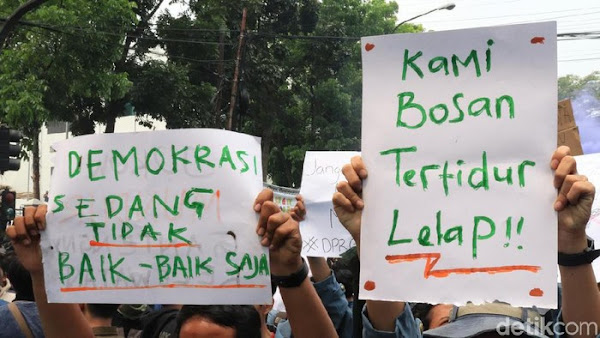 DEMOKRASI
SEDANG
TIDAK
BAIK-BAIK SAJA
Kami
Bosan
Tertidur
Lelap!!
detikcom